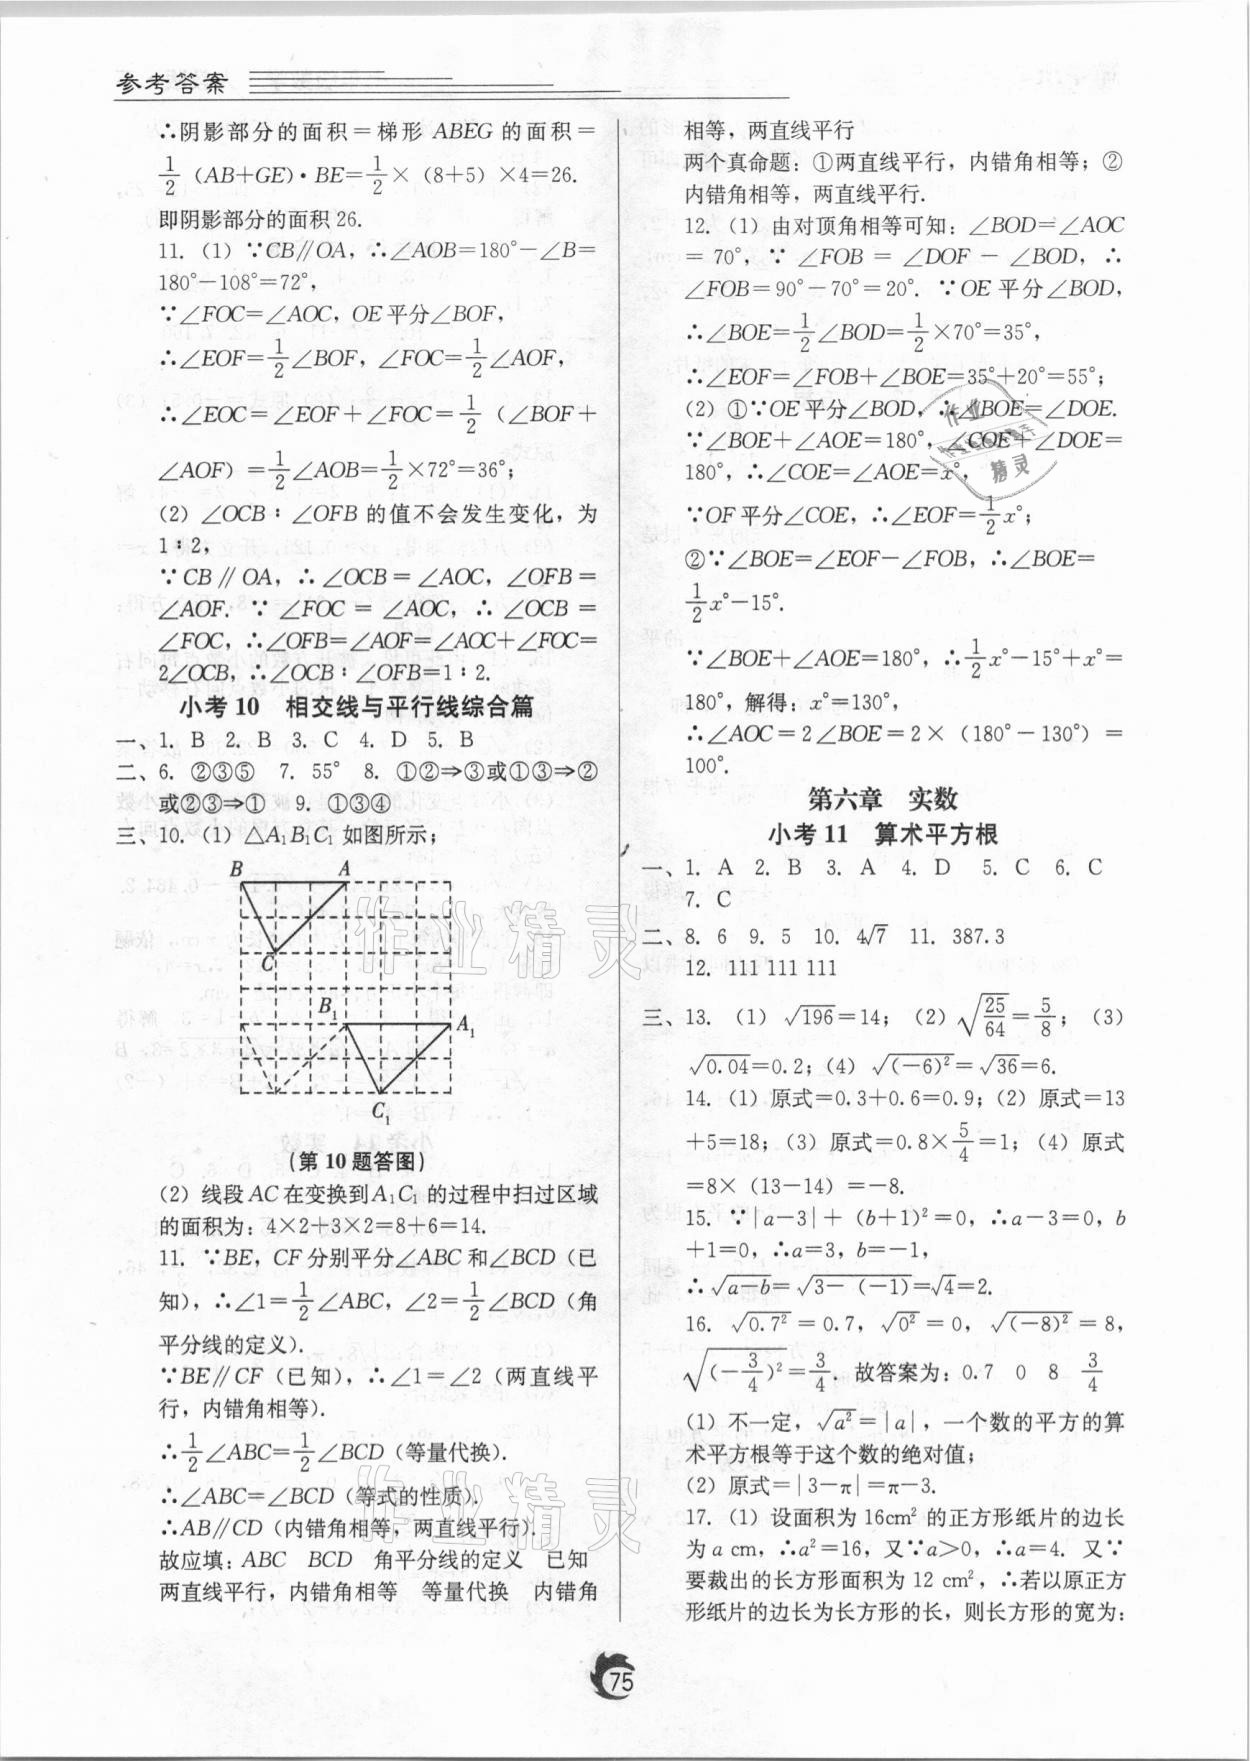 参考答案
∴阴影部分的面积＝梯形 ABEG 的面积＝
1/2（AB+GE）·BE＝1/2×（8+5）×4=26.
即阴影部分的面积 26.
11.（1）∵CB∥OA，∴∠AOB＝180°－∠B＝
180°－108°＝72°，
∵∠FOC＝∠AOC，OE 平分∠BOF，
∴∠EOF＝1/2∠BOF，∠FOC＝1/2∠AOF，
∴∠EOC＝∠EOF＋∠FOC＝1/2（∠BOF＋
∠AOF）＝1/2∠AOB＝1/2×72°＝36°；
（2）∠OCB∶∠OFB 的值不会发生变化，为
1∶2，
∵CB∥OA，∴∠OCB＝∠AOC，∠OFB＝
∠AOF. ∵∠FOC＝∠AOC，∴∠OCB＝
∠FOC，∴∠OFB＝∠AOF＝∠AOC＋∠FOC＝
2∠OCB，∴∠OCB∶∠OFB＝1∶2.
小考 10　相交线与平行线综合篇
一、1. B　2. B　3. C　4. D　5. B
二、6. ②③⑤　7. 55°　8. ①②⇒③或①③⇒②
或②③⇒①　9. ①③④
三、10.（1）△A₁B₁C₁ 如图所示；
B　A
C
B₁　A₁
C₁
（第 10 题答图）
（2）线段 AC 在变换到 A₁C₁ 的过程中扫过区域
的面积为：4×2+3×2=8+6=14.
11. ∵BE，CF 分别平分∠ABC 和∠BCD（已
知），∴∠1＝1/2∠ABC，∠2＝1/2∠BCD（角
平分线的定义）.
∵BE∥CF（已知），∴∠1＝∠2（两直线平
行，内错角相等）.
∴1/2∠ABC＝1/2∠BCD（等量代换）.
∴∠ABC＝∠BCD（等式的性质）.
∴AB∥CD（内错角相等，两直线平行）.
故应填：ABC　BCD　角平分线的定义　已知
两直线平行，内错角相等　等量代换　内错角
相等，两直线平行
两个真命题：①两直线平行，内错角相等；②
内错角相等，两直线平行.
12.（1）由对顶角相等可知：∠BOD＝∠AOC
＝70°，∵∠FOB＝∠DOF－∠BOD，∴
∠FOB＝90°－70°＝20°. ∵OE 平分∠BOD，
∴∠BOE＝1/2∠BOD＝1/2×70°＝35°，
∴∠EOF＝∠FOB＋∠BOE＝35°＋20°＝55°；
（2）①∵OE 平分∠BOD，∴∠BOE＝∠DOE.
∵∠BOE＋∠AOE＝180°，∠COE＋∠DOE＝
180°，∴∠COE＝∠AOE＝x°，
∵OF 平分∠COE，∴∠EOF＝1/2x°；
②∵∠BOE＝∠EOF－∠FOB，∴∠BOE＝
1/2x°－15°.
∵∠BOE＋∠AOE＝180°，∴1/2x°－15°＋x°＝
180°，解得：x°＝130°，
∴∠AOC＝2∠BOE＝2×（180°－130°）＝
100°.
第六章　实数
小考 11　算术平方根
一、1. A　2. B　3. A　4. D　5. C　6. C
7. C
二、8. 6　9. 5　10. 4√7　11. 387.3
12. 111 111 111
三、13.（1）√196＝14；（2）√(25/64)＝5/8；（3）
√0.04＝0.2；（4）√(－6)²＝√36＝6.
14.（1）原式＝0.3+0.6＝0.9；（2）原式＝13
+5＝18；（3）原式＝0.8×5/4＝1；（4）原式
＝8×（13－14）＝－8.
15. ∵|a－3|＋（b＋1）²＝0，∴a－3＝0，b
＋1＝0，∴a＝3，b＝－1，
∴√(a－b)＝√(3－（－1）)＝√4＝2.
16. √0.7²＝0.7，√0²＝0，√(－8)²＝8，
√(－3/4)²＝3/4. 故答案为：0.7　0　8　3/4
（1）不一定，√a²＝|a|，一个数的平方的算
术平方根等于这个数的绝对值；
（2）原式＝|3－π|＝π－3.
17.（1）设面积为 16cm² 的正方形纸片的边长
为 a cm，∴a²＝16，又∵a＞0，∴a＝4. 又∵
要裁出的长方形面积为 12 cm²，∴若以原正方
形纸片的边长为长方形的长，则长方形的宽为：
75
作业精灵
作业精灵
作业
精灵